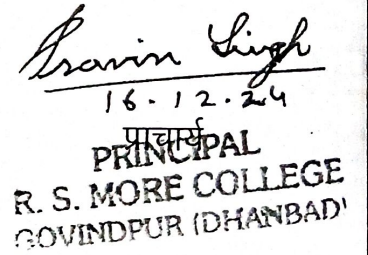 Pravin Singh
16.12.24
प्राचार्य
PRINCIPAL
R. S. MORE COLLEGE
GOVINDPUR (DHANBAD)